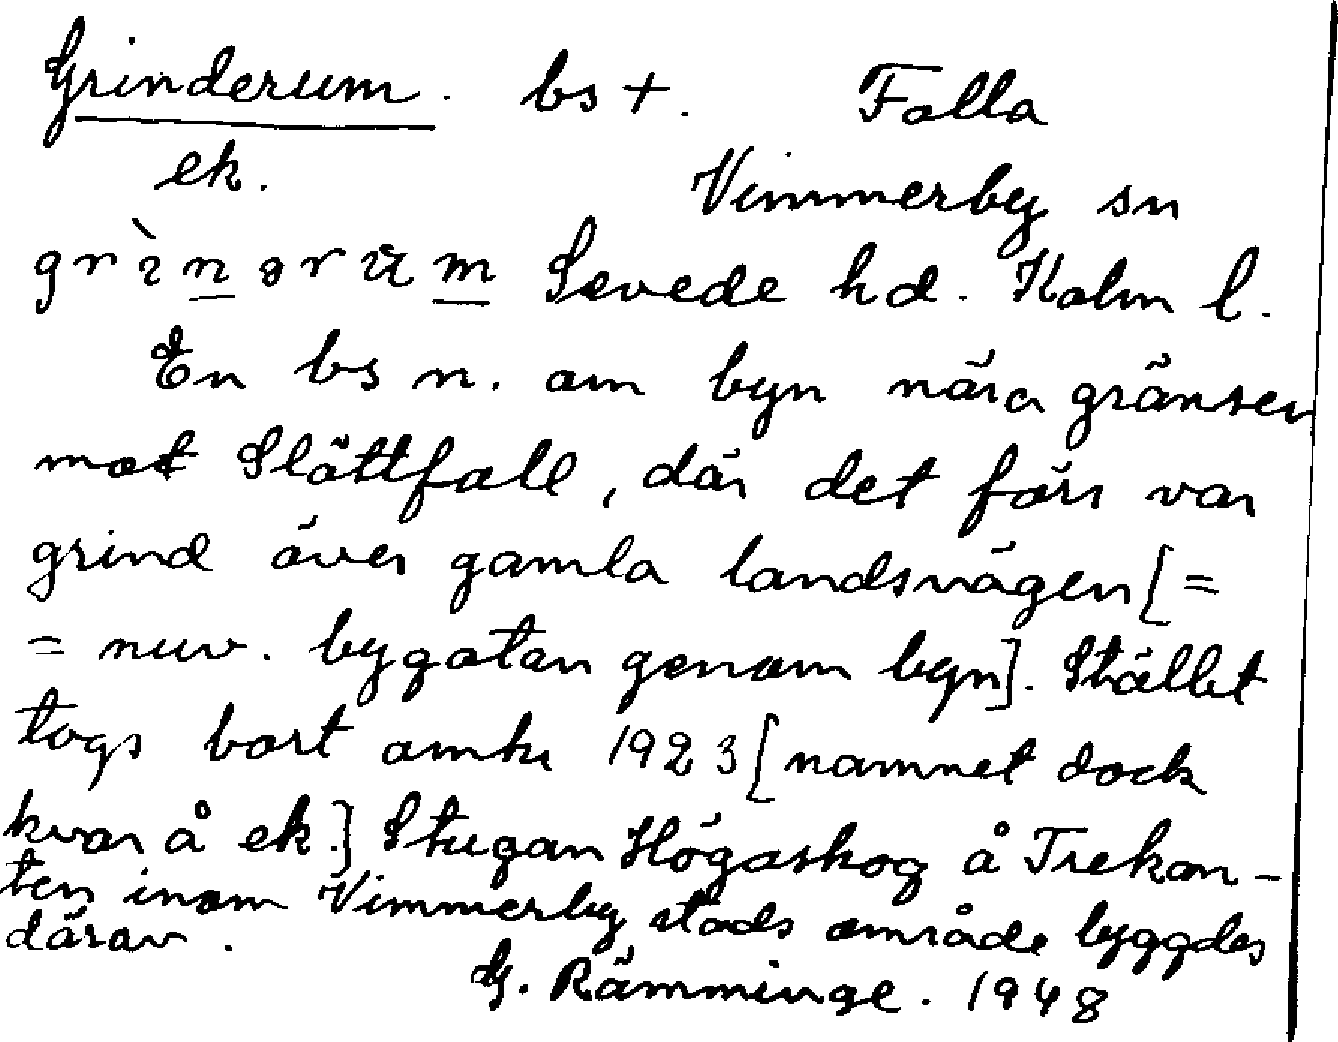 Grinderum. bs +. Falla
ek. Vimmerby sn
grìnərum Sevede hd. Kalm l.
En bs n. om byn nära gränsen
mot Slättfall, där det förr var
grind över gamla landsvägen [=
= nuv. bygatan genom byn]. Stället
togs bort omkr 1923 [namnet dock
kvar å ek.] Stugan Högaskog å Trekan-
ten inom Vimmerby stads område byggdes
därav.
G. Rämminge. 1948